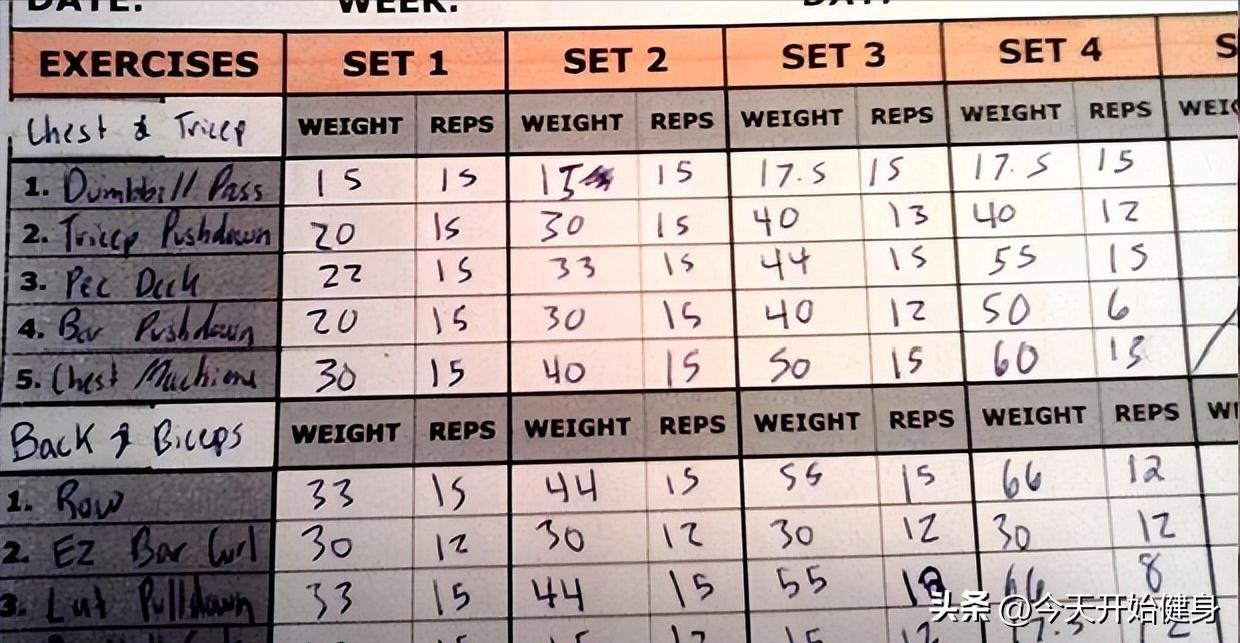 DATE: WEEK: DAY:
EXERCISES SET 1 SET 2 SET 3 SET 4 S
Chest & Tricep WEIGHT REPS WEIGHT REPS WEIGHT REPS WEIGHT REPS WEIG
1. Dumbbill Pass 15 15 15 15 17.5 15 17.5 15
2. Tricep Pushdown 20 15 30 15 40 13 40 12
3. Pec Deck 22 15 33 15 44 15 55 15
4. Bar Pushdown 20 15 30 15 40 12 50 6
5. Chest Machiene 30 15 40 15 50 15 60 15
Back & Biceps WEIGHT REPS WEIGHT REPS WEIGHT REPS WEIGHT REPS WI
1. Row 33 15 44 15 55 15 66 12
2. EZ Bar Curl 30 12 30 12 30 12 30 12
3. Lat Pulldown 33 15 44 15 55 66 8
15 12 15 12 7.5
头条 @今天开始健身